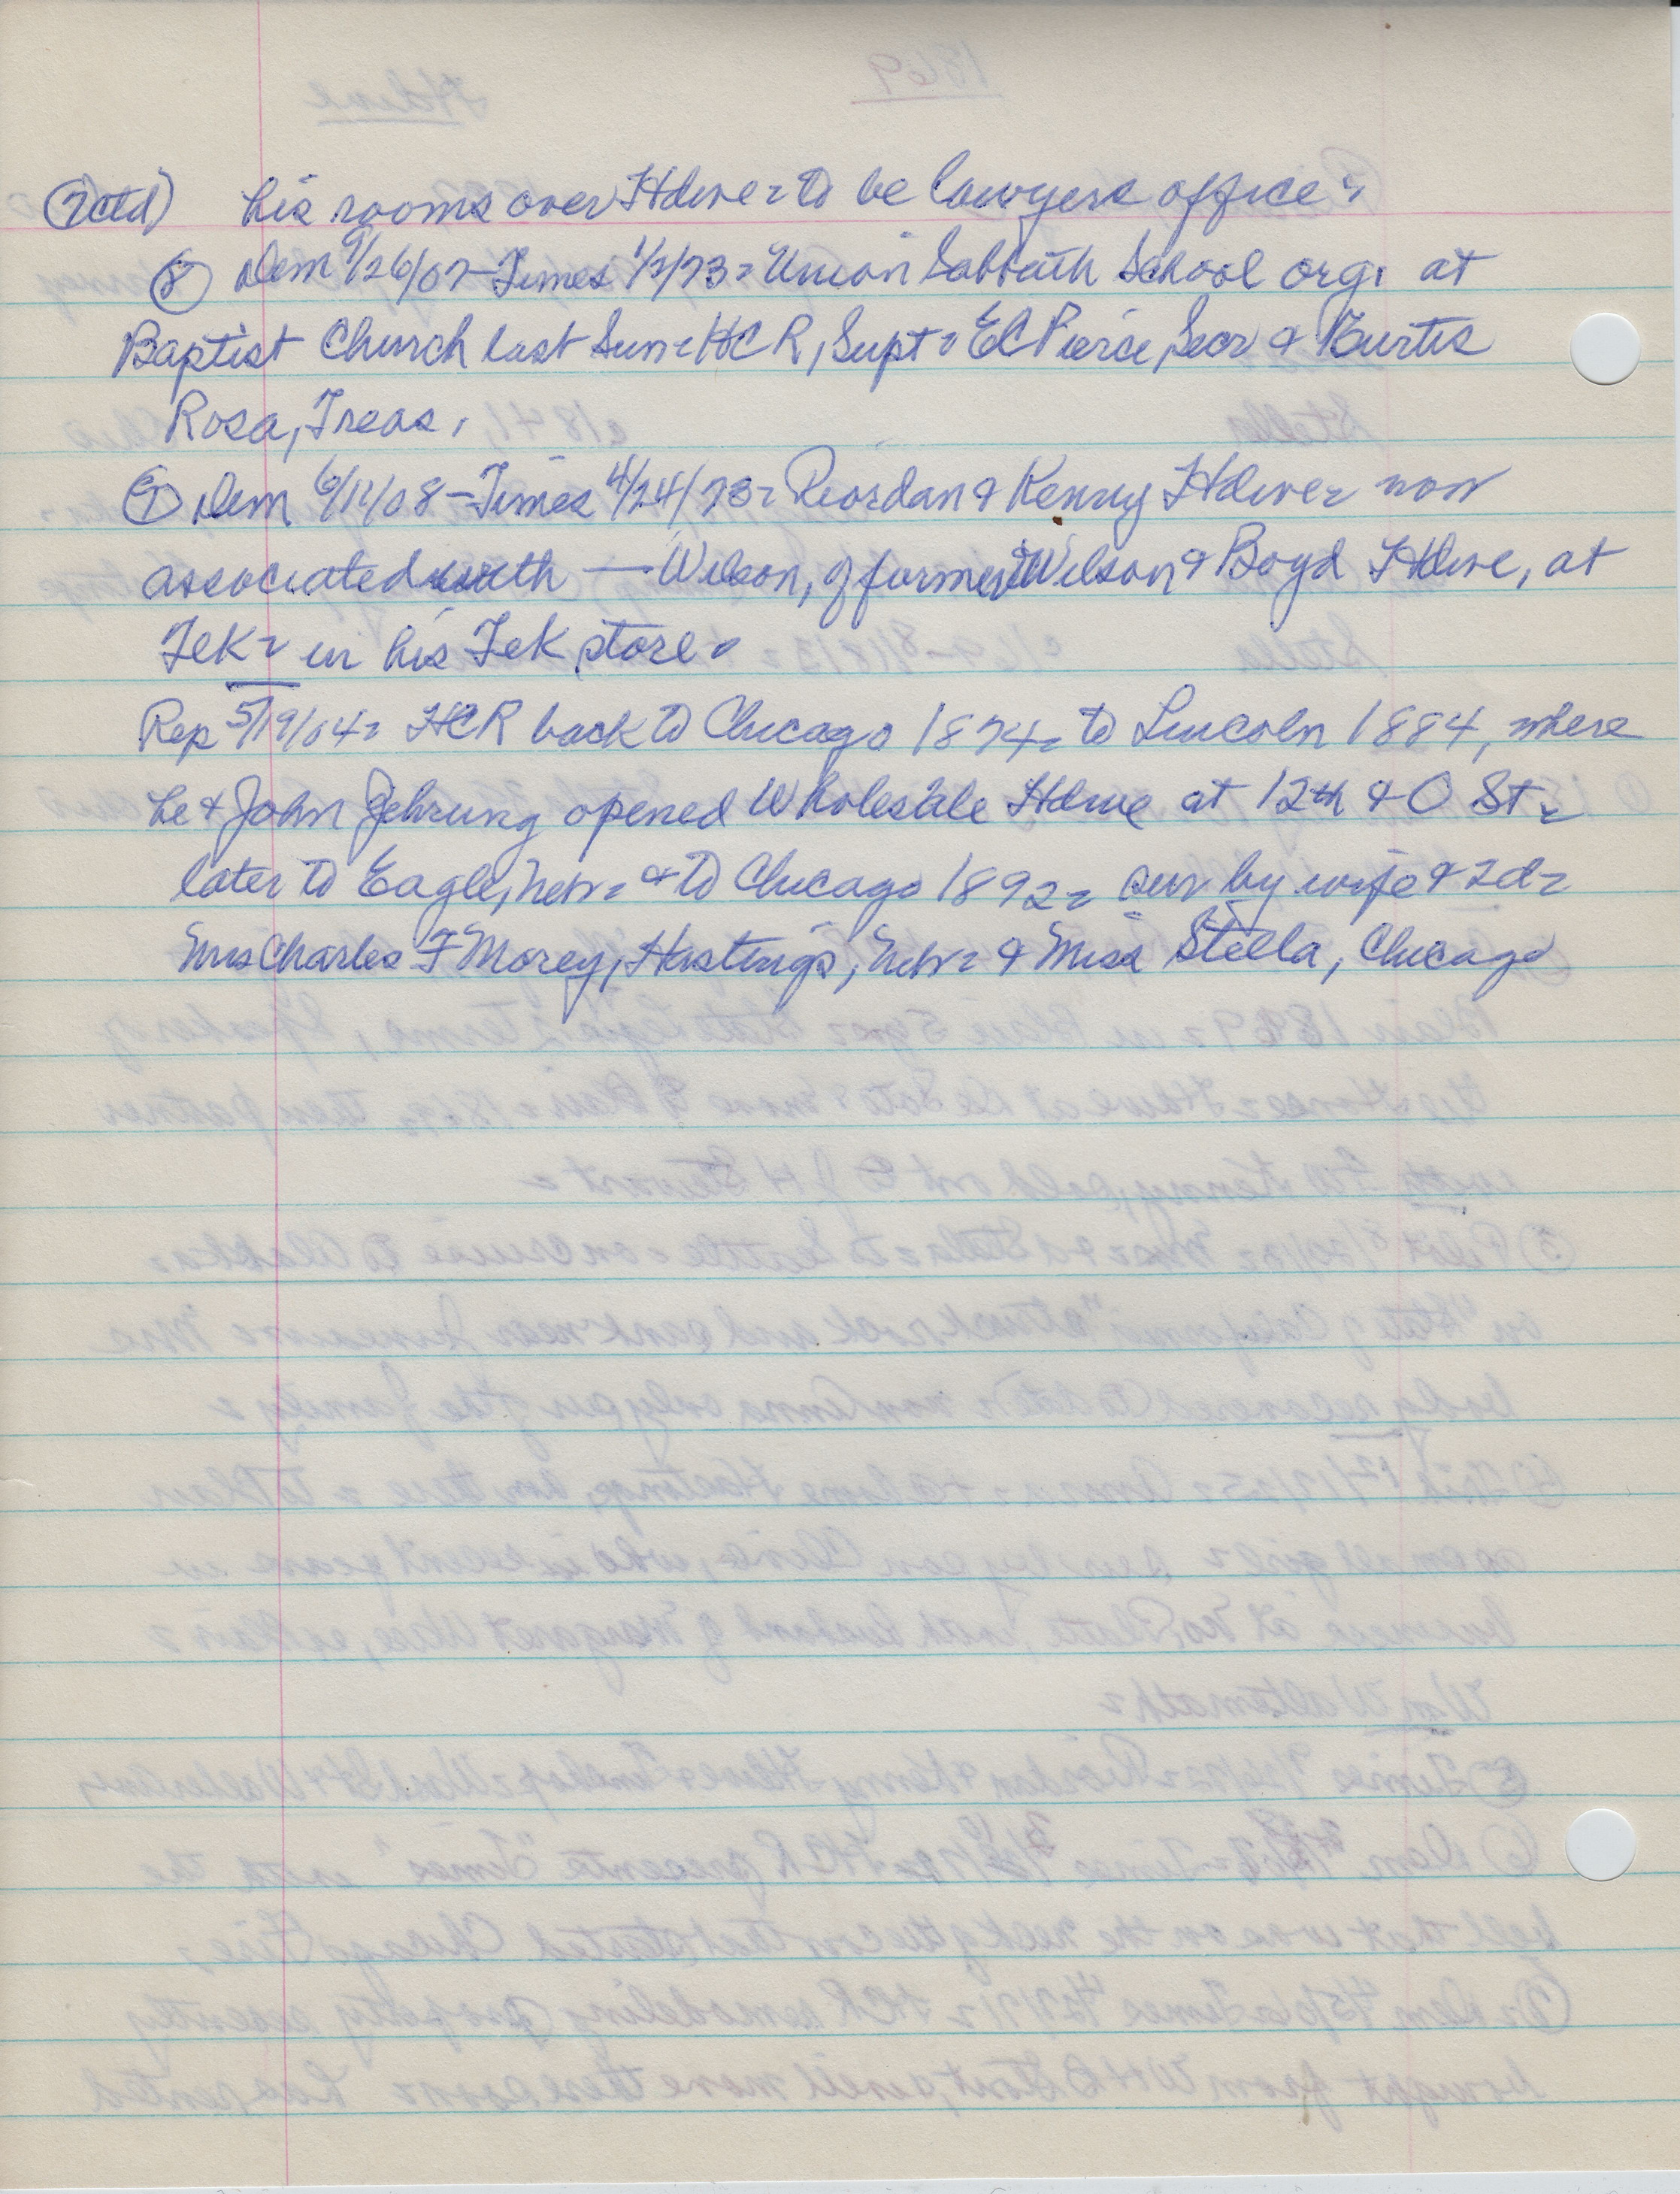 (7 ctd) his rooms over Hdwe = to be lawyers office =
(8) Dem 9/26/07 - Times 1/2/73 = Union Sabbath School org. at
Baptist Church last Sun = HCR, Supt = EC Pierce, Secr & Burtis
Rosa, Treas.
(9) Dem 6/11/08 - Times 4/24/73 = Riordan & Kenny Hdwe = now
associated with — Wilson, of former Wilson & Boyd Hdwe, at
Tek = in his Tek store =
Rep 5/19/04 = HCR back to Chicago 1874 = to Lincoln 1884, where
he & John Gehrung opened Wholesale Hdwe at 12th & O St =
later to Eagle, Nebr = & to Chicago 1892 = sur by wife & 2d =
Mrs Charles F Morey, Hastings, Nebr = & Miss Stella, Chicago